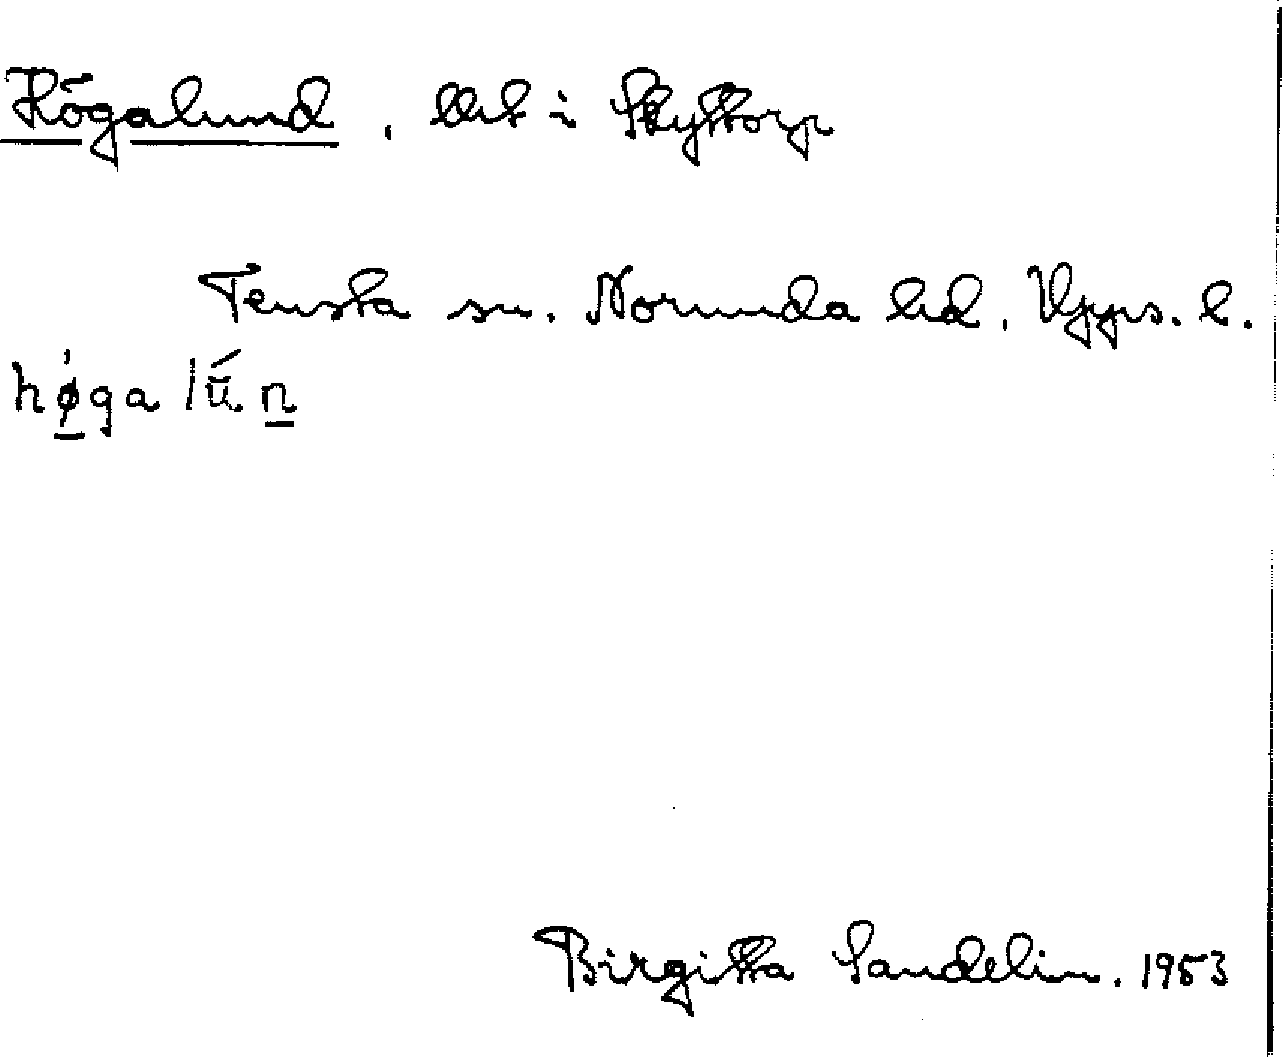 Högalund, lht i Skyttorp
Tensta sn. Norunda hd. Upps. l.
hø̀ga lū́n
Birgitta Sandelin. 1953